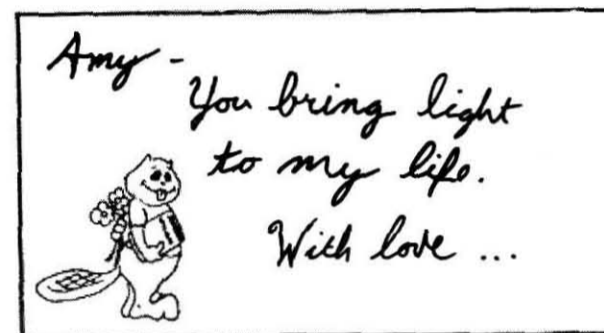 Amy -
You bring light
to my life.
With love ...